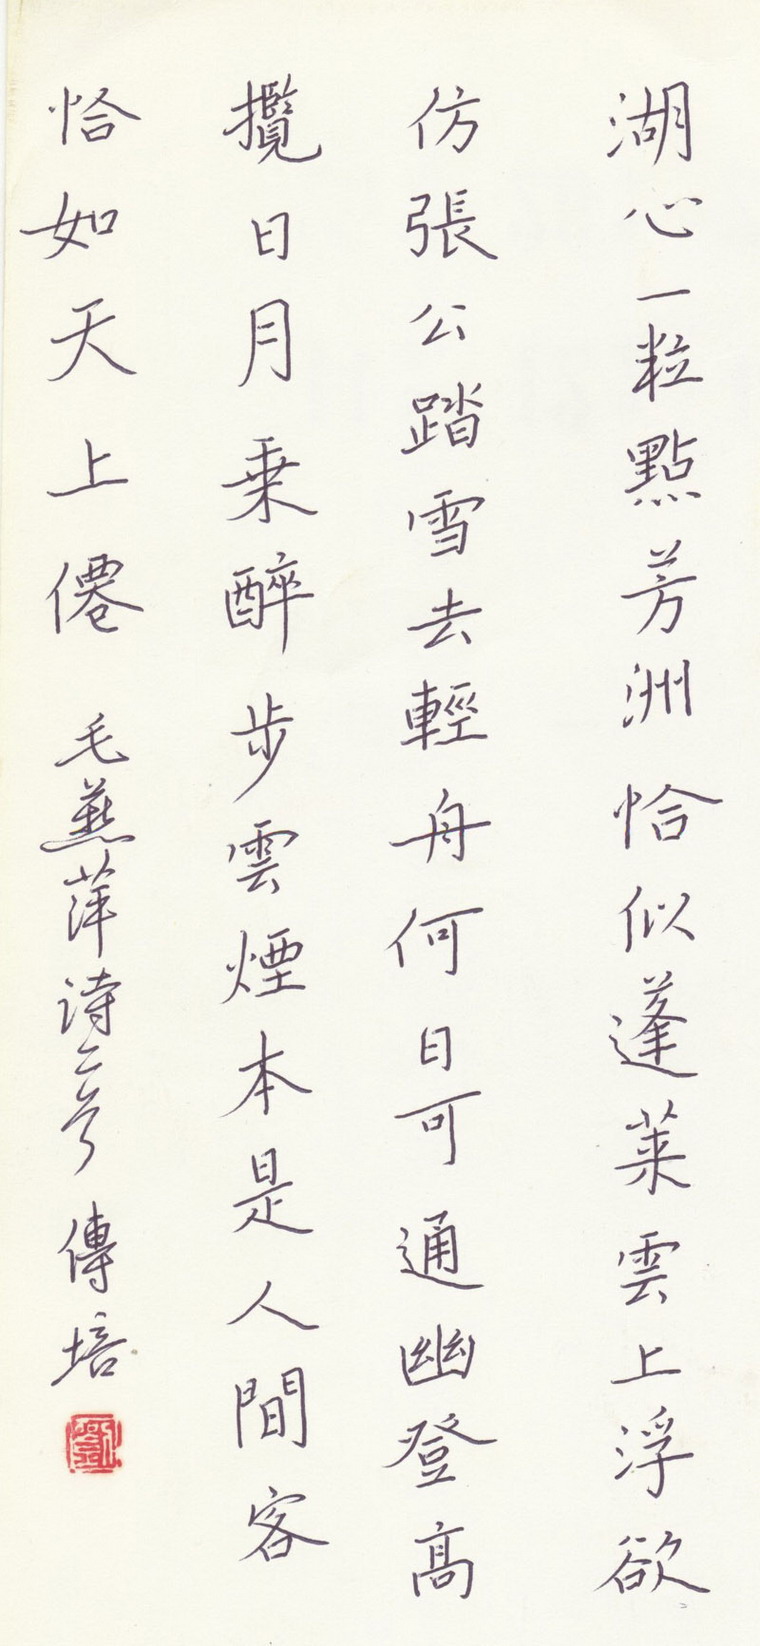 湖心一粒點芳洲恰似蓬萊雲上浮欲
仿張公踏雪去輕舟何日可通幽登高
攬日月乗醉步雲煙本是人間客
恰如天上僊 毛燕萍诗二首 傳培